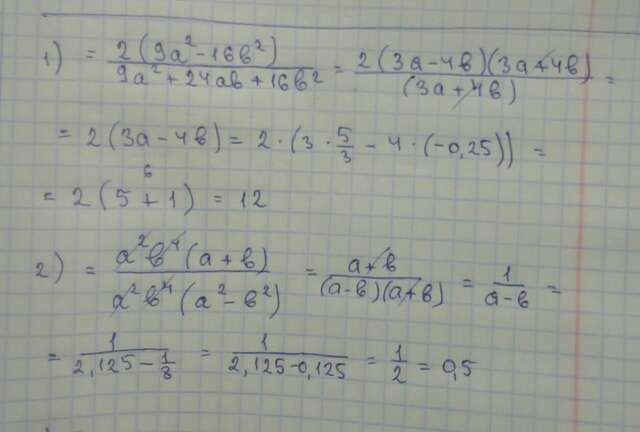 1) = 2(9a²-16b²)/9a²+24ab+16b² = 2(3a-4b)(3a+4b)/(3a+4b) =
= 2(3a-4b) = 2·(3·5/3-4·(-0,25)) =
6
= 2(5+1) = 12
2) = a²b⁴(a+b)/a²b⁴(a²-b²) = a+b/(a-b)(a+b) = 1/a-b =
= 1/2,125-1/8 = 1/2,125-0,125 = 1/2 = 0,5